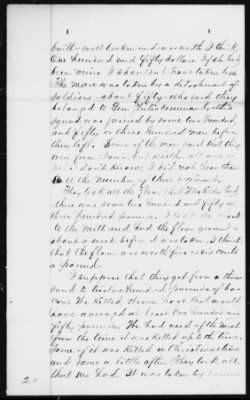 built - well broken and was worth I think
One hundred and fifty dollars If she had
been mine I shouldn't have taken less
The mare was taken by a detachment of
soldiers - about fifty who said they
belonged to Gen command - this
squad was joined by some two hundred
and fifty or three hundred men before
they left. Some of the men said they
were from Iowa, but whether all were or
not I don't know. I did not hear them
call the number of their regiment.
They took all the flour that Haskins had
there was some two hundred and fifty or
three hundred pounds. I took the
to the mill and had the flour ground -
about a week before it was taken. I think
that the flour was worth five or six cents
a pound.
I suppose that they got from a thou-
sand to twelve hundred pounds of ba-
con. He killed eleven hogs that would
have averaged at least one hundred and
fifty pounds. He had used of the meat
from the time it was killed up to the time
Some of it was killed in Christmas time
and some a little after. They took all
that we had. It was taken by